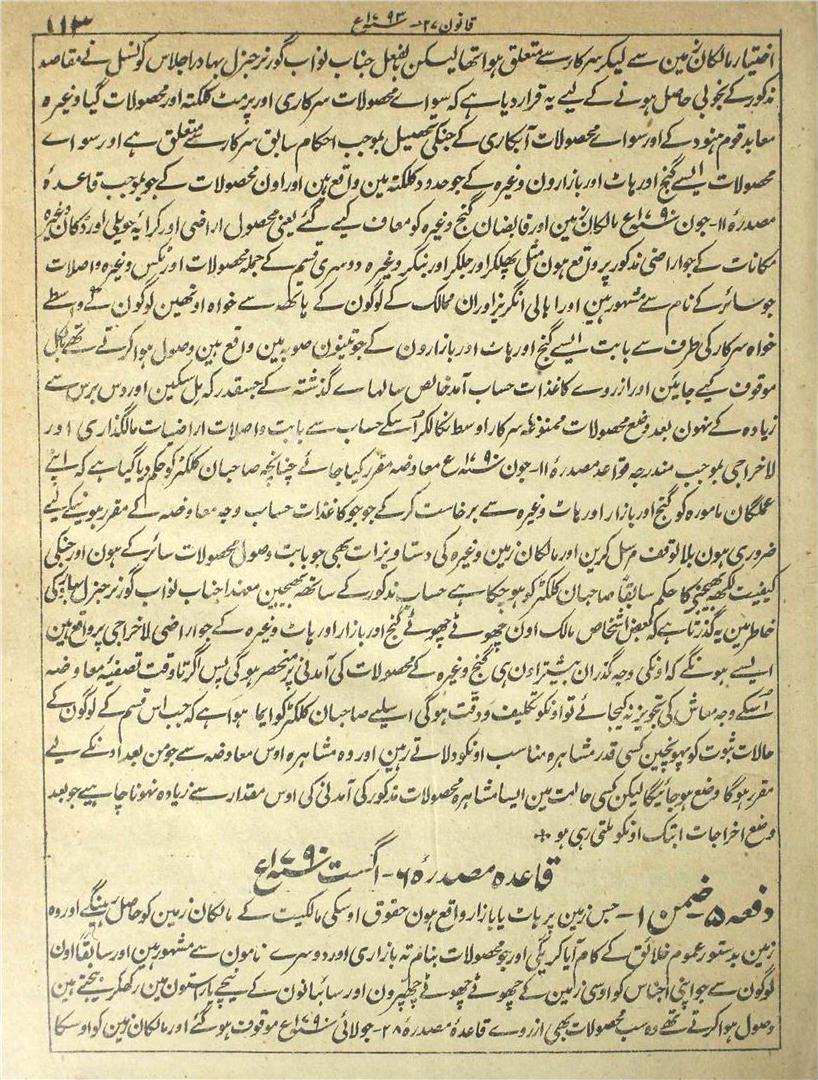 قانون ۲۷ - سنہ ۱۷۹۳ع
۱۱۳
اختیار مالکان زمین سے لیکر سرکار سے متعلق ہوا تھا لیکن بفعل جناب نواب گورنر جنرل بہادر اجلاس کونسل نے مقاصد
مذکور کے بخوبی حاصل ہونے کے لیے یہ قرار دیا ہے کہ سواے محصولات سرکاری اور پرمٹ کلکتہ اور محصولات گیا وغیرہ
معابد قوم ہنود کے اور سواے محصولات آبکاری کے جنکی تحصیل بموجب احکام سابق سرکار سے متعلق ہے اور سواے
محصولات ایسے گنج اور ہاٹ اور بازارون وغیرہ کے جو حدود کلکتہ مین واقع ہین اور اون محصولات کے جو بموجب قاعدۂ
مصدرۂ ۱۱ - جون سنہ ۱۷۹۰ع مالکان زمین اور قابضان گنج وغیرہ کو معاف کیے گئے یعنی محصول اراضی اور کرایہ حویلی اور دکان وغیرہ
مکانات کے جو اراضی مذکور پر واقع ہون مثل پھلکر اور جلکر اور بنکر وغیرہ دوسری قسم کے جملہ محصولات اور ٹکس وغیرہ واصلات
جو سائر کے نام سے مشہور ہین اور اہالی انگریز اور ان ممالک کے لوگون کے ہاتھ سے خواہ اونھین لوگون کے واسطے
خواہ سرکار کی طرف سے بابت ایسے گنج اور ہاٹ اور بازارون کے جو تینون صوبہ مین واقع ہین وصول ہوا کرتے تھے بالکل
موقوف کیے جایئن اور ازروے کاغذات حساب آمد خالص سالہاے گذشتہ کے جسقدر کہ مل سکین اور دس برس سے
زیادہ کے نہون بعد وضع محصولات ممنوعہ سرکار اوسط نکالکر اُسکے حساب سے بابت واصلات اراضیات مالگذاری اور
لاخراجی بموجب مندرجہ قواعد مصدرۂ ۱۱ - جون سنہ ۱۷۹۰ع معاوضہ مقرر کیا جائے چنانچہ صاحبان کلکٹر کو حکم دیا گیا ہے کہ اپنے
عملگان مامورہ کو گنج اور بازار اور ہاٹ وغیرہ سے برخاست کر کے جو جو کاغذات حساب وجہ معاوضہ کے مقرر ہونیکے لیے
ضروری ہون بلا توقف مرسل کرین اور مالکان زمین وغیرہ کی دستاویزات بھی جو بابت وصول محصولات سائر کے ہون اور جنکی
کیفیت لکھہ بھیجنے کا حکم سابقاً صاحبان کلکٹر کو ہو چکا ہے حساب مذکور کے ساتھہ بھیجین معہذا جناب نواب گورنر جنرل بہادر کی
خاطر مین یہ گذرتا ہے کہ بعض اشخاص مالک اون چھوٹے چھوٹے گنج اور بازار اور ہاٹ وغیرہ کے جو اراضی لاخراجی پر واقع ہین
ایسے ہونگے کہ اونکی وجہ گذران بیشتر اون ہی گنج وغیرہ کے محصولات کی آمدنی پر منحصر ہو گی پس اگر تا وقت تصفیۂ معاوضہ
اُسکے وجہ معاش کی تجویز نہ کیجائے تو اونکو تکلیف و دقت ہو گی اسلیے صاحبان کلکٹر کو ایما ہوا ہے کہ جب اس قسم کے لوگون کے
حالات ثبوت کو پہونچین کسی قدر مشاہرہ مناسب اونکو دلاتے رہین اور وہ مشاہرہ اوس معاوضہ سے جو من بعد اونکے لیے
مقرر ہو گا وضع ہو جائیگا لیکن کسی حالت مین ایسا مشاہرہ محصولات مذکور کی آمدنی کی اوس مقدار سے زیادہ نہونا چاہیے جو بعد
وضع اخراجات ابتک اونکو ملتی رہی ہو
قاعدہ مصدرۂ ۶ - اگست سنہ ۱۷۹۰ع
دفعہ ۵ - ضمن ۱ - جس زمین پر ہاٹ یا بازار واقع ہون حقوق اوسکی مالکیت کے مالکان زمین کو حاصل رہینگے اور وہ
زمین بدستور عموم خلائق کے کام آیا کریگی اور جو محصولات بنام تہ بازاری اور دوسرے نامون سے مشہور ہین اور سابقاً اون
لوگون سے جو اپنی اجناس کو اوسی زمین کے چھوٹے چھوٹے چھپرون اور سائبانون کے نیچے یا راستون مین رکھکر بیچتے ہین
وصول ہوا کرتے تھے وہ سب محصولات بھی ازروے قاعدۂ مصدرۂ ۲۸ - جولائی سنہ ۱۷۹۰ع موقوف ہو گئے اور مالکان زمین کو اوسکا